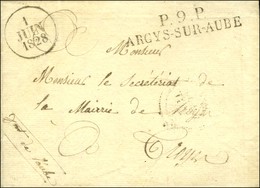 1
JUIN
1828
P.9.P.
ARCYS-SUR-AUBE
Monsieur
Monsieur le Secrétaire de
la Mairie de
Troyes